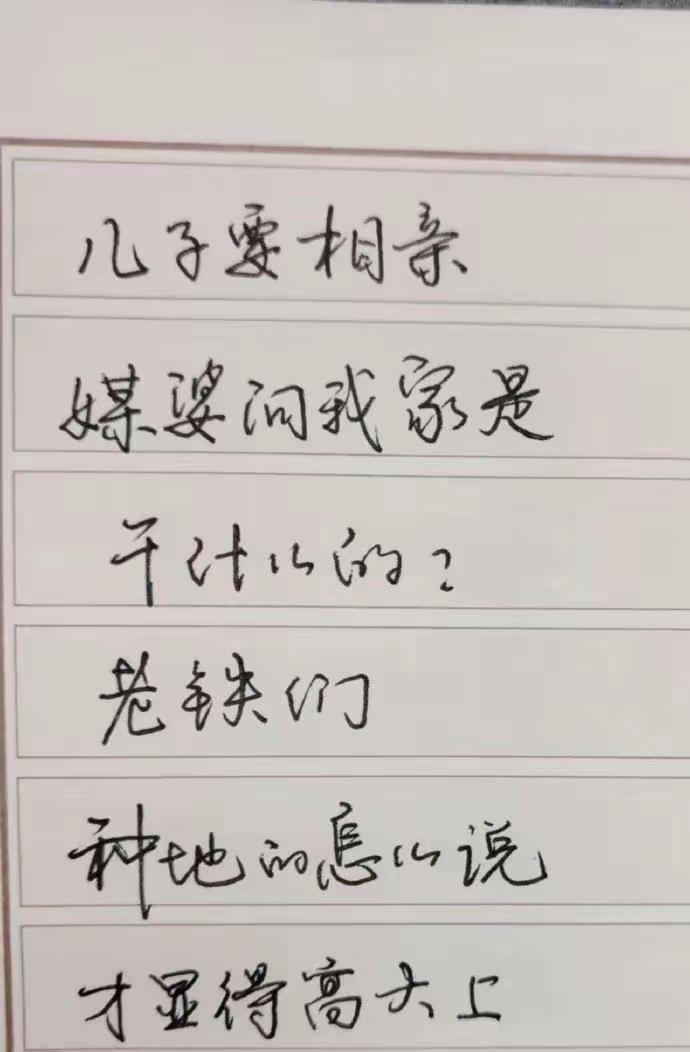 儿子要相亲
媒婆问我家是
干什么的？
老铁们
种地的怎么说
才显得高大上